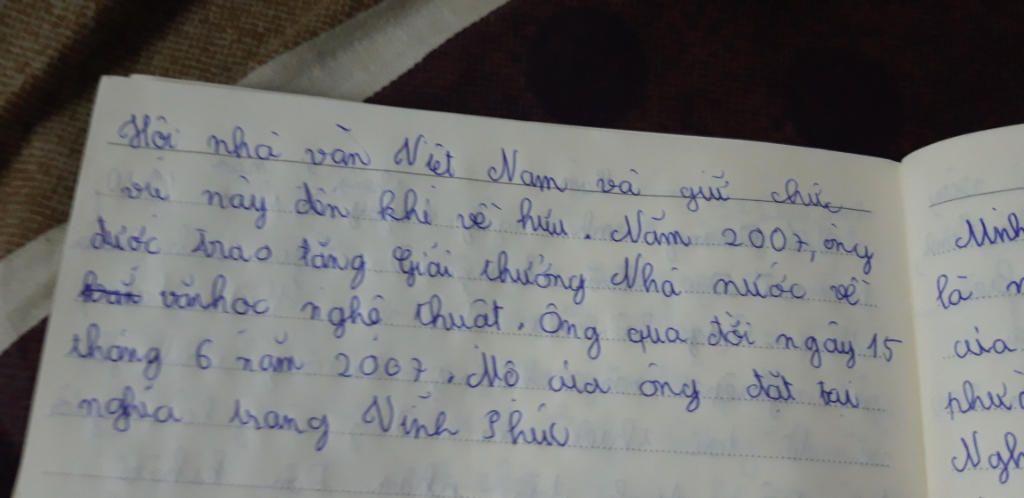 Hội nhà văn Việt Nam và giữ chức
vụ này đến khi về hưu. Năm 2007, ông
được trao tặng giải thưởng Nhà nước về
văn học nghệ thuật. Ông qua đời ngày 15
tháng 6 năm 2007. Mộ của ông đặt tại
nghĩa trang Vĩnh Phúc
Minh
là
của
Ngh